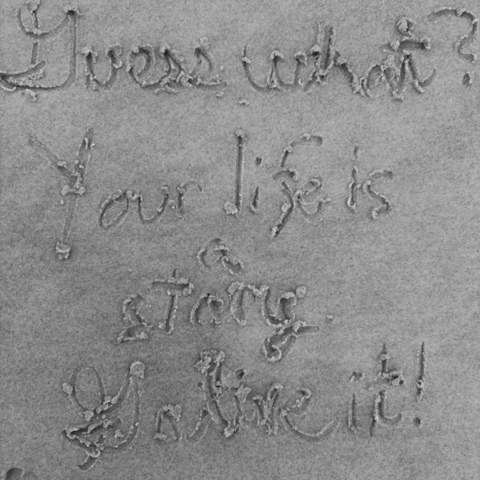 Guess what?
Your life is
a
story.
Go live it!